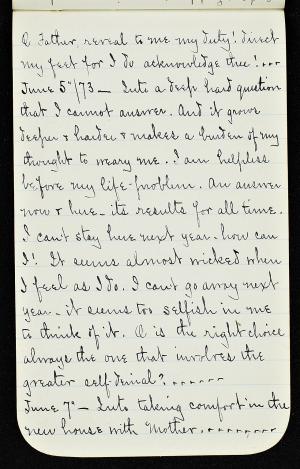 O Father, reveal to me my duty! direct
my feet for I do acknowledge thee! ...
June 5"/73 — Into a deep hard question
that I cannot answer. And it grows
deeper & harder & makes a burden of my
thought to weary me. I am helpless
before my life-problem. An answer
now & here - its results for all time.
I can't stay here next year - how can
I! It seems almost wicked when
I feel as I do. I can't go away next
year - it seems too selfish in me
to think of it. O is the right choice
always the one that involves the
greater self-denial? .......
June 7" — Into taking comfort in the
new house with Mother. ........